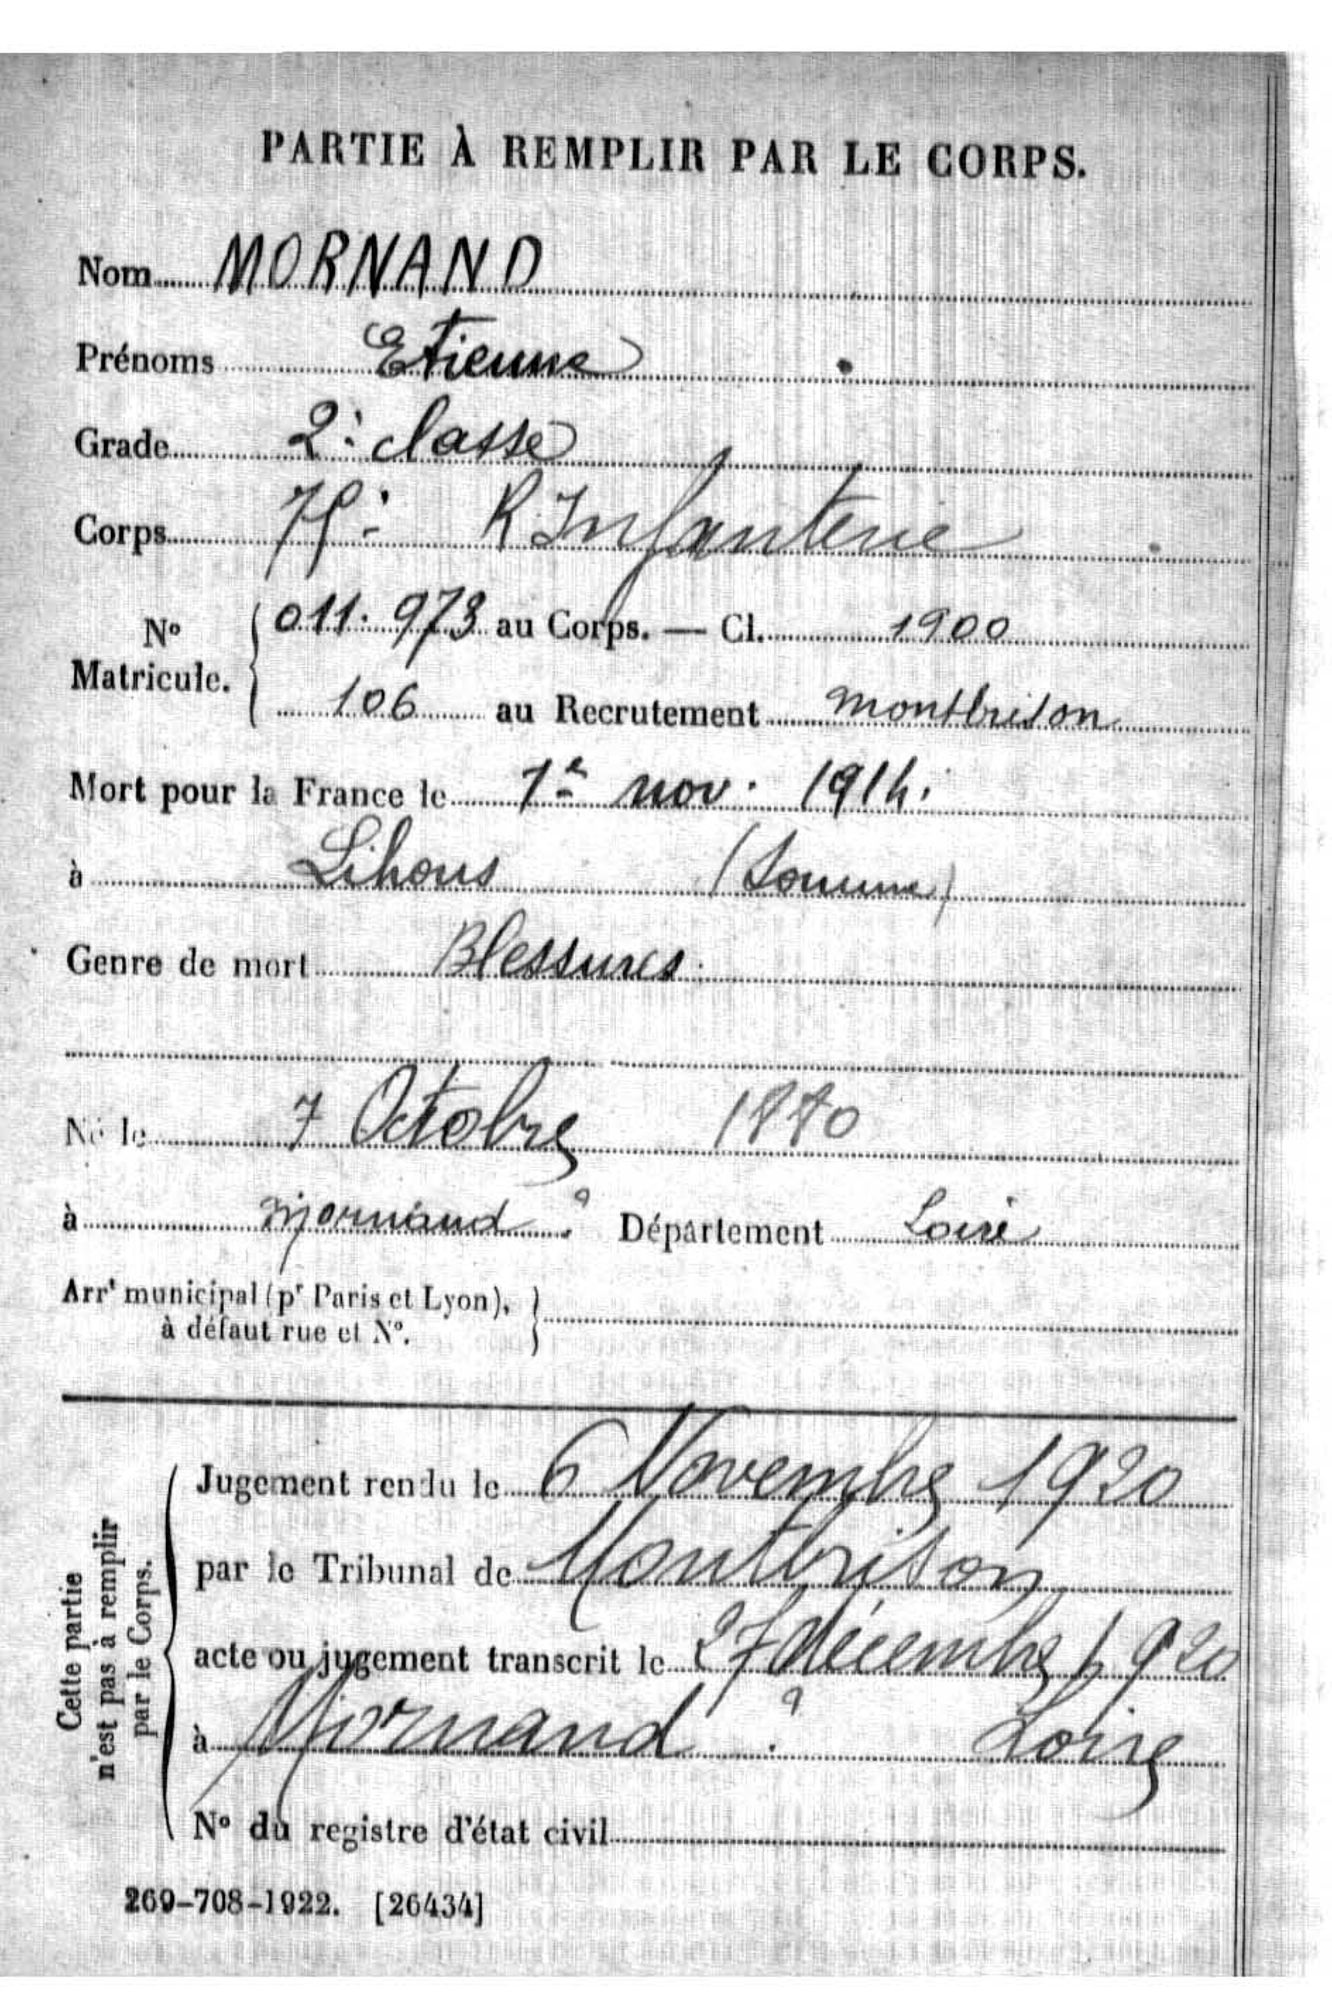 PARTIE À REMPLIR PAR LE CORPS.
Nom MORNAND
Prénoms Etienne
Grade 2e classe
Corps 75e R. Infanterie
No Matricule. 011.973 au Corps. — Cl. 1900
106 au Recrutement Montbrison
Mort pour la France le 1er nov. 1914.
à Lihons (Somme)
Genre de mort Blessures.
Né le 7 Octobre 1880
à Mornand ? Département Loire
Arrt municipal (pr Paris et Lyon),
à défaut rue et No.
Cette partie
n'est pas à remplir
par le Corps.
Jugement rendu le 6 Novembre 1920
par le Tribunal de Montbrison
acte ou jugement transcrit le 27 décembre 1920
à Mornand ? Loire
No du registre d'état civil
269-708-1922. [26434]